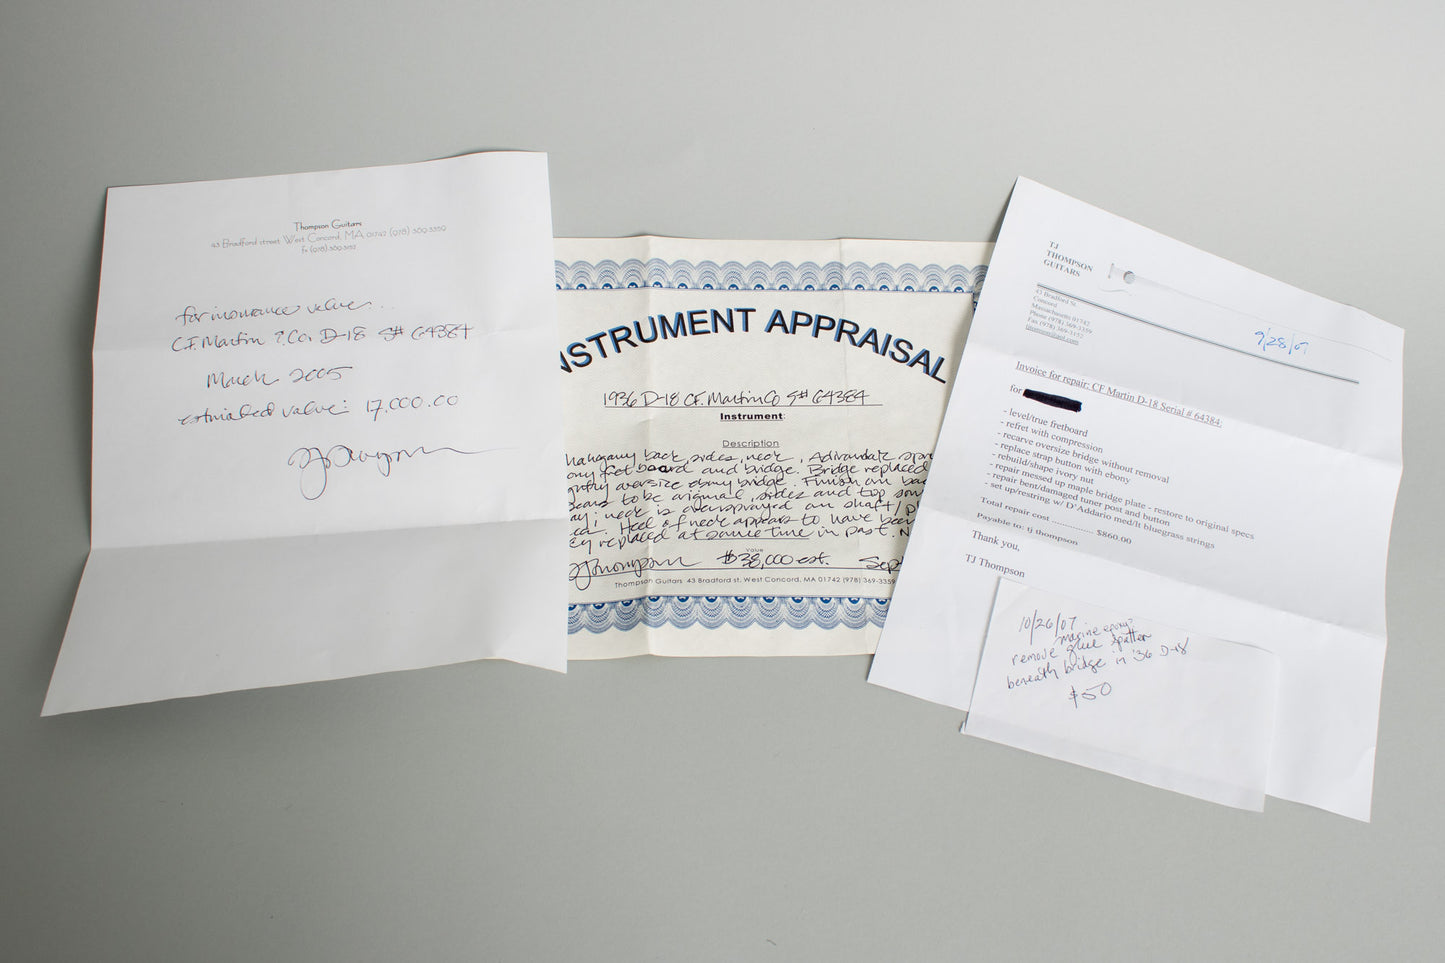 Thompson Guitars
43 Bradford street West Concord, MA 01742 (978) 369-3359
fx (978) 369-3152
for insurance value...
C.F. Martin & Co. D-18 S# 64384
March 2005
estimated value: 17,000.00
TJ Thompson
INSTRUMENT APPRAISAL
1936 D-18 C.F. Martin Co S# 64384
Instrument:
Description
mahogany back, sides, neck, Adirondack
fretboard and bridge. Bridge replaced
oversize ebony bridge. Finish on
to be original, sides and top
neck is oversprayed on shaft/
Heel of neck appears to have been
replaced at same time in past.
Value
TJ Thompson $38,000 est. Sept
Thompson Guitars 43 Bradford st. West Concord, MA 01742 (978) 369-3359
TJ
THOMPSON
GUITARS
43 Bradford St.
Concord
Massachusetts 01742
Phone (978) 369-3359
Fax (978) 369-3152
9/28/07
Invoice for repair: CF Martin D-18 Serial # 64384:
for
- level/true fretboard
- refret with compression
- recarve oversize bridge without removal
- replace strap button with ebony
- rebuild/shape ivory nut
- repair messed up maple bridge plate - restore to original specs
- repair bent/damaged tuner post and button
- set up/restring w/ D'Addario med/lt bluegrass strings
Total repair cost ............... $860.00
Payable to: tj thompson
Thank you,
TJ Thompson
10/26/07
marine epoxy?
remove glue spatter
beneath bridge in '36 D-18
$50